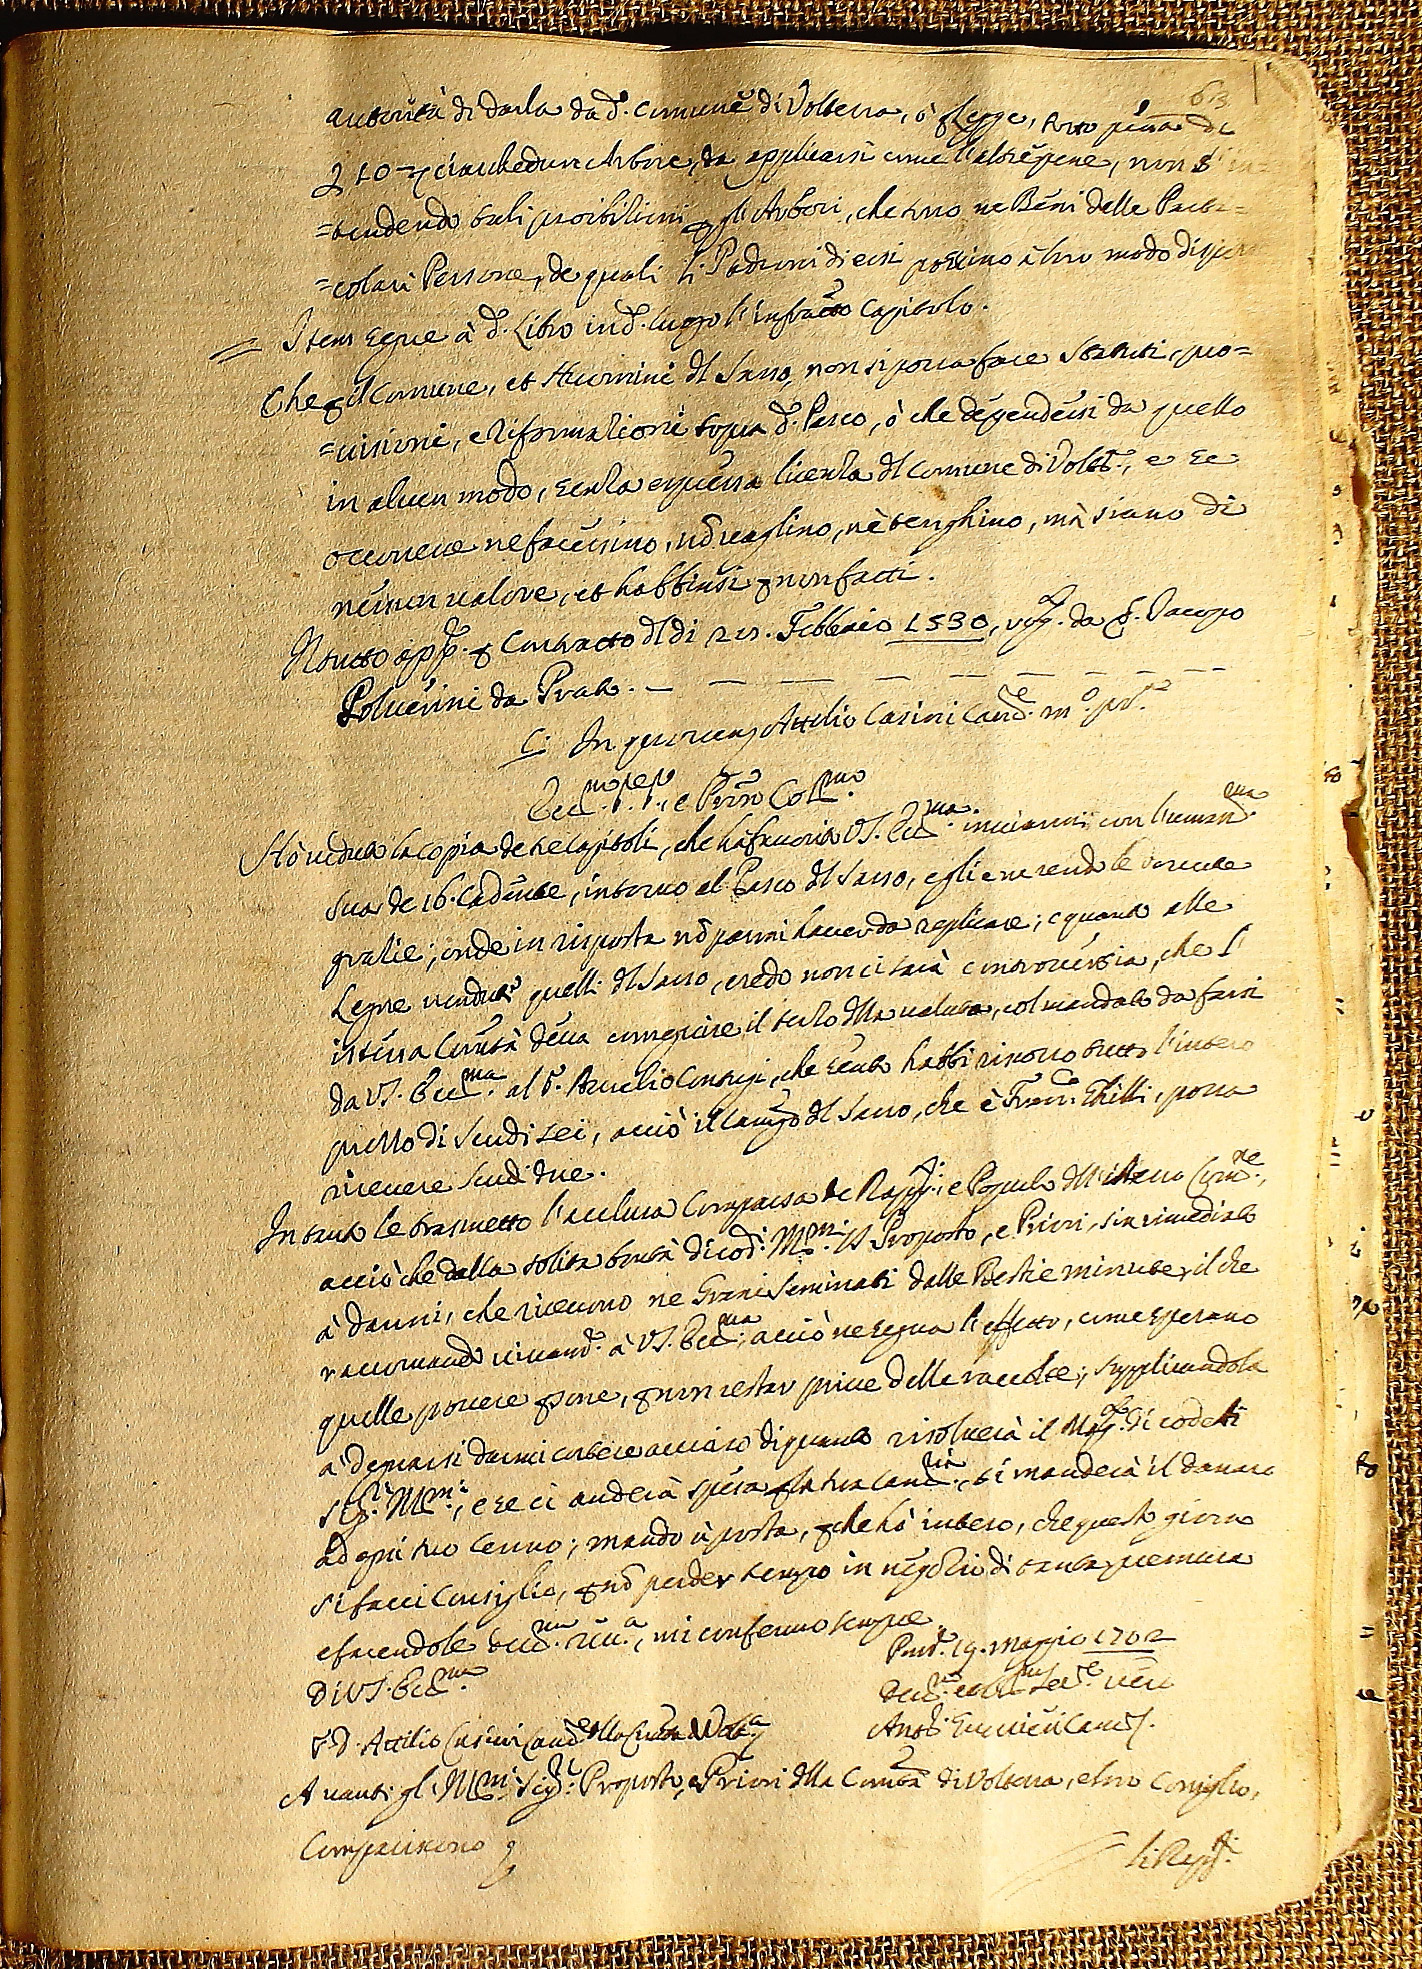 63
autorità di darla da d.º Comune di Volterra, ò p legge, sotto pena di
£ 10 p ciaschedun Arbore, da applicarsi come l'altre pene, non s'in=
=tendendo tali proibilioni p gli Arbori, che sono ne Beni delle Parti=
=colari Persone, de quali li Padroni di essi possino à loro modo disporre
Item segue à d.º Libro in d.º luogo l'infratto Capitolo.
Che p il Comune, et Huomini dl Sasso, non si possa fare Statuti, pro=
=uisioni, e riformazioni sopra d.º Pasco, ò che dependessi da quello
in alcun modo, senza espressa licenza dl Comune di Volt.ª, e se
occorrere ne facessino, nō uaglino, nè tenghino, mà siano di
nessun ualore, et habbinsi p non fatti.
Il tutto app.º p Contratto dl dì 21. Febbraio 1530, rog. da S. Jacopo
Poluerini da Prato. — — — — — — — —
In quorum Attilio Casini Canc.e m.º pp.ª
Ecc.mo Sig.re, e Pron Col.mo
Hò ueduto la copia de tre Capitoli, che hà fauorito VS. Ecc.ma inuiarmi con l'uman.ma
sua de 16. Cadente, intorno al Pasco dl Sasso, e gliene rendo le douute
grazie; onde in risposta nō parmi hauer da replicare; e quanto alle
Legne uendute quelli dl Sasso, credo non ci sarà controuersia, che l'
istessa Comtà deua conseguire il terzo dlla ualuta, col mandato da farsi
da VS. Ecc.ma al S.r Aurelio Contugi, che sento habbi riscosso tutto l'intero
prezzo di scudi sei, acciò il Camgo dl Sasso, che è Fran.co Ghilli, possa
riceuere scudi due.
In tanto le trasmetto l'acclusa Comparsa de Rapp.ti, e Popolo dll'istesso Com.ne,
acciò che dalla solita bontà di cod.i Ill.mi SS. Proposto, e Priori, sia rimediato
à danni, che riceuono ne Grani Seminati dalle Bestie minute, il che
raccomando uiuam.te à VS. Ecc.ma, acciò ne segua l'effetto, come sperano
quelle pouere psone, p non restar priue delle raccolte; supplicandola
a degnarsi darmi cortese auuiso di quanto risoluerà il Mag.to di codesti
Sig.ri Ill.mi, e se ci anderà spesa p la sua Canc.ria, si manderà il danaro
ad ogni suo cenno; mando à posta, p che hò inteso, che questo giorno
si facci Consiglio, p nō perder tempo in negozio di tanta premura
e facendole deu.ma riu.a, mi confermo sempre
Di VS. Ecc.ma
Pom.ce 19. Maggio 1702
S.r D. Attilio Casini Canc.e dlla Comtà di Volt.a
Auanti gl'Ill.mi Sig.ri Proposto, e Priori dlla Comtà di Volterra, e loro Consiglio,
Compariscono
li Rapp.ti